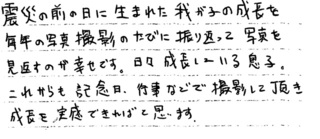 震災の前の日に生まれた我が子の成長を
毎年の写真撮影のたびに振り返って写真を
見返すのが幸せです。日々成長している息子。
これからも記念日、行事などで撮影して頂き
成長を実感できればと思います。